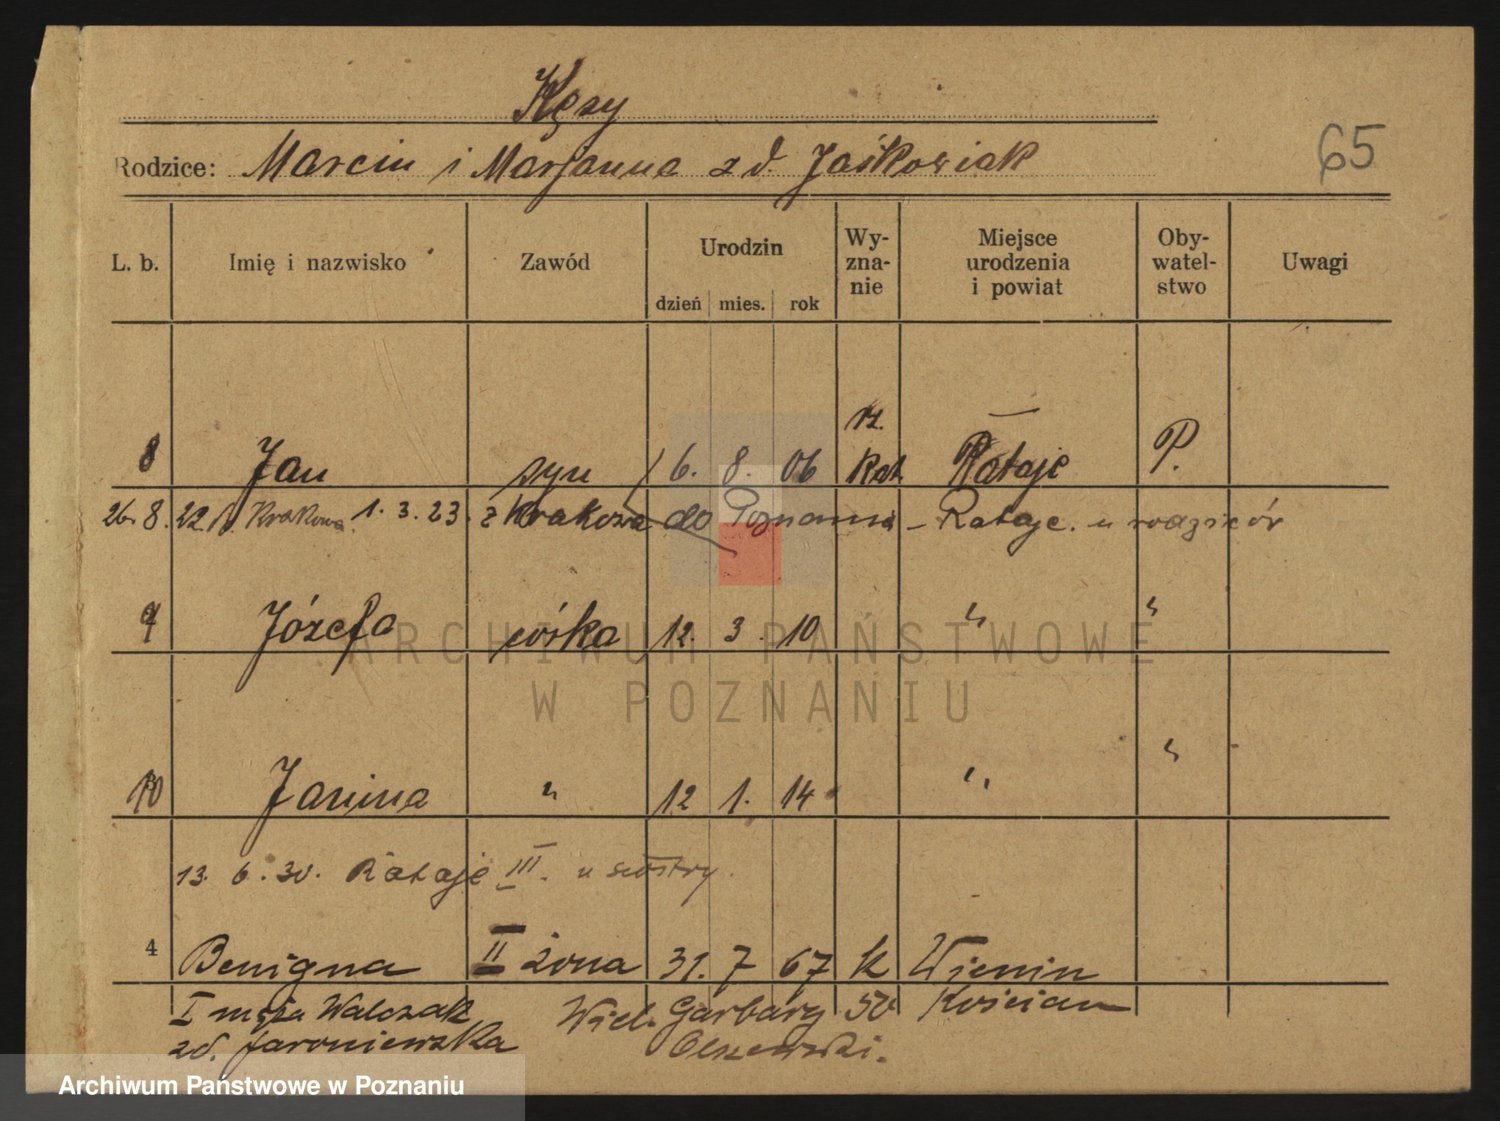 Kęsy
65
Rodzice: Marcin i Marjanna z d. Jaśkowiak
L. b. Imię i nazwisko Zawód Urodzin dzień mies. rok Wy- zna- nie Miejsce urodzenia i powiat Oby- watel- stwo Uwagi
rz.
8 Jan syn 6. 8. 06 Kat. Rataje P.
26. 8. 22 Krakowa 1. 3. 23. z Krakowa do Poznania - Rataje. u rodziców
9 Józefa córka 12. 3. 10 " "
ARCHIWUM PAŃSTWOWE
W POZNANIU
10 Janina " 12 1. 14 " "
13. 6. 30. Rataje III. u siostry.
4 Benigna II żona 31. 7 67 K
I męża Walczak Wiel. Garbary 50 Kościan
zd. Jaroniewska Olszewski.
Archiwum Państwowe w Poznaniu